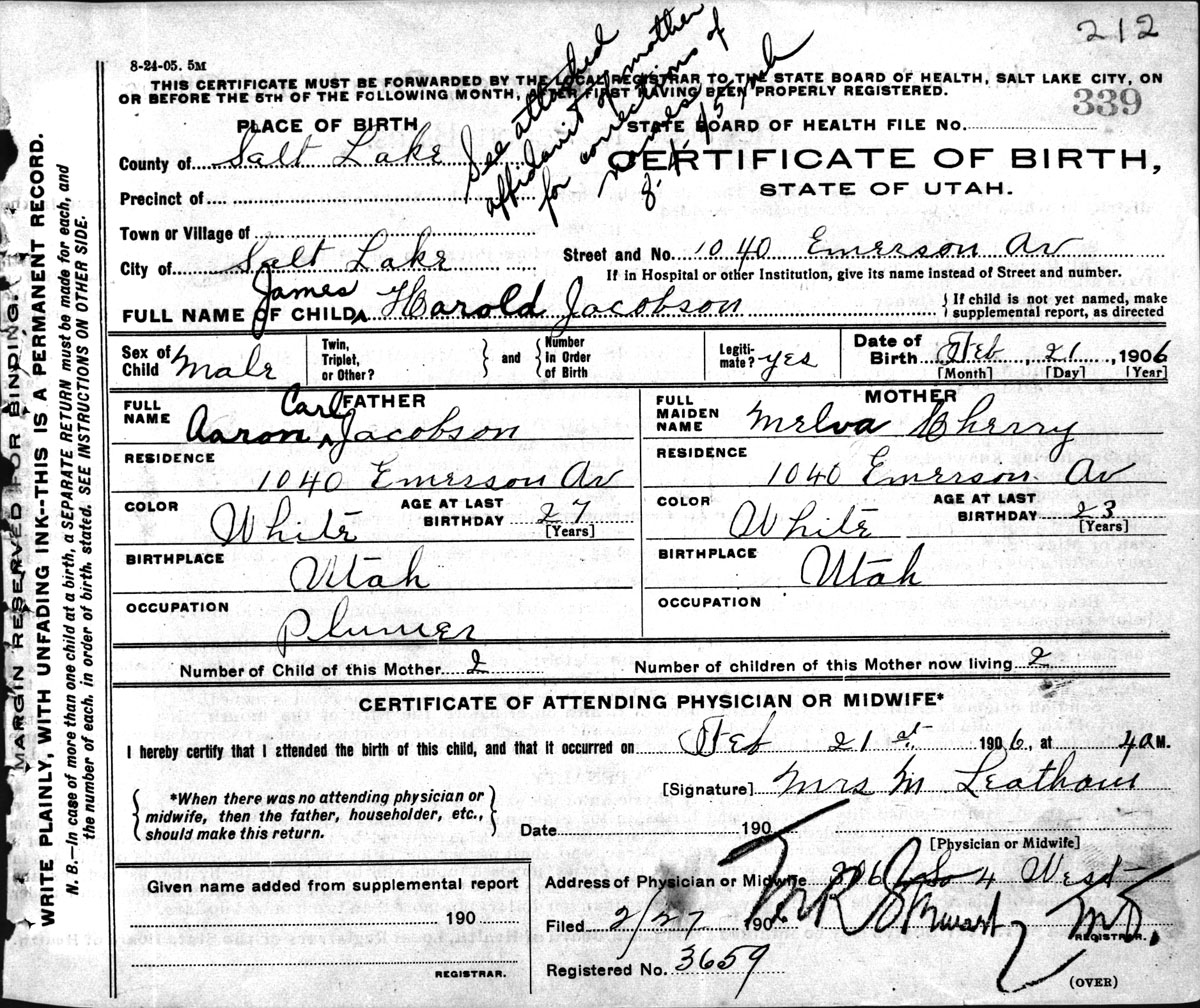 212
8-24-05. 5M
THIS CERTIFICATE MUST BE FORWARDED BY THE LOCAL REGISTRAR TO THE STATE BOARD OF HEALTH, SALT LAKE CITY, ON
OR BEFORE THE 5TH OF THE FOLLOWING MONTH, AFTER FIRST HAVING BEEN PROPERLY REGISTERED.
339
See attached
affidavit of mother
for corrections of
names
PLACE OF BIRTH
STATE BOARD OF HEALTH FILE No.
County of Salt Lake
CERTIFICATE OF BIRTH,
STATE OF UTAH.
Precinct of
Town or Village of
City of Salt Lake Street and No. 1040 Emerson Av
If in Hospital or other Institution, give its name instead of Street and number.
James
FULL NAME OF CHILD ^ Harold Jacobson { If child is not yet named, make supplemental report, as directed
Sex of Child Male Twin, Triplet, or Other? } and { Number in Order of Birth Legiti-mate? yes Date of Birth Feb 21, 1906
[Month] [Day] [Year]
FATHER
FULL NAME Aaron ^ Carl Jacobson
RESIDENCE
1040 Emerson Av
COLOR White AGE AT LAST BIRTHDAY 27 [Years]
BIRTHPLACE
Utah
OCCUPATION
Plumer
MOTHER
FULL MAIDEN NAME Melva Cherry
RESIDENCE
1040 Emerson Av
COLOR White AGE AT LAST BIRTHDAY 23 [Years]
BIRTHPLACE
Utah
OCCUPATION
Number of Child of this Mother 2 Number of children of this Mother now living 2
CERTIFICATE OF ATTENDING PHYSICIAN OR MIDWIFE*
I hereby certify that I attended the birth of this child, and that it occurred on Feb 21st 1906, at 4 a M.
{ *When there was no attending physician or midwife, then the father, householder, etc., should make this return. }
[Signature] Mrs M Leatham
Date 190
[Physician or Midwife]
Given name added from supplemental report
190
REGISTRAR.
Address of Physician or Midwife So 4 West
Filed 2/27 1906 Stewart M.D.
REGISTRAR.
Registered No. 3659
(OVER)
MARGIN RESERVED FOR BINDING.
WRITE PLAINLY, WITH UNFADING INK--THIS IS A PERMANENT RECORD.
N. B.—In case of more than one child at a birth, a SEPARATE RETURN must be made for each, and
the number of each, in order of birth, stated. SEE INSTRUCTIONS ON OTHER SIDE.